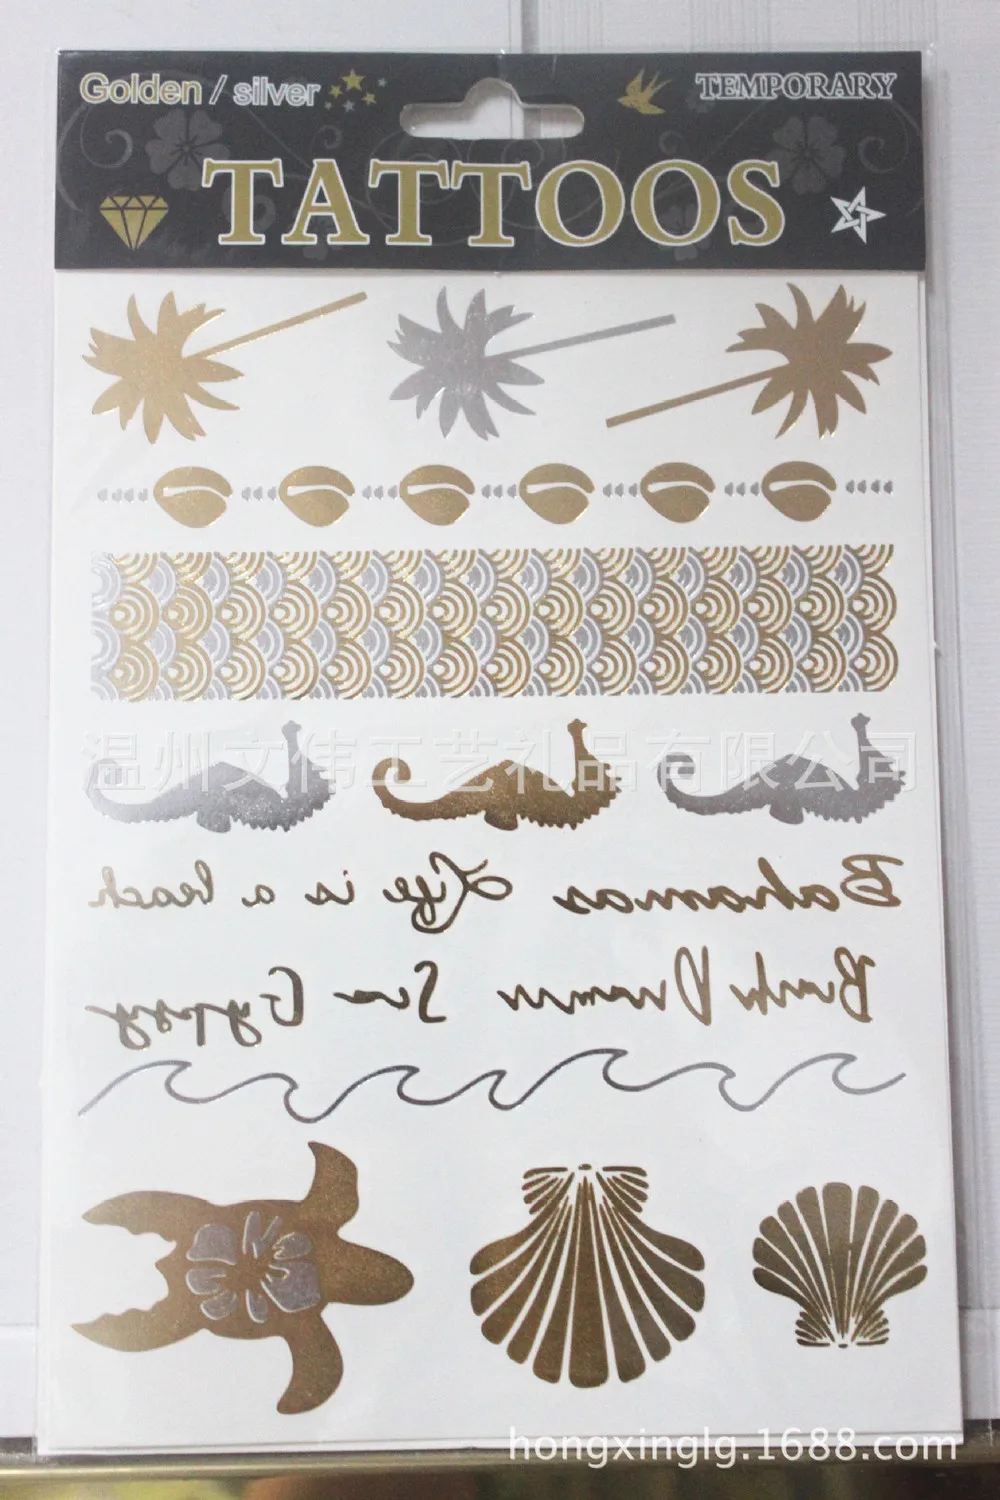 Golden / silver
TEMPORARY
TATTOOS
温州文伟工艺礼品有限公司
Bahamas Life is a beach
Beach Dreamin Sea Gypsy
hongxinglg.1688.com